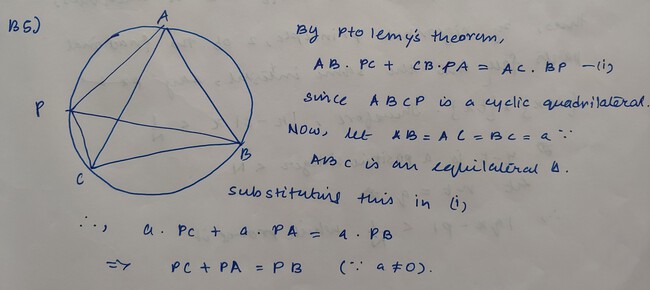 B5)
A
P
B
C
By Ptolemy's theorem,
AB. PC + CB.PA = AC. BP —(i)
since ABCP is a cyclic quadrilateral.
Now, let AB = AC = BC = a ∵
ABC is an equilateral Δ.
substituting this in (i)
∴, a. PC + a. PA = a. PB
=> PC + PA = PB (∵ a ≠ 0).